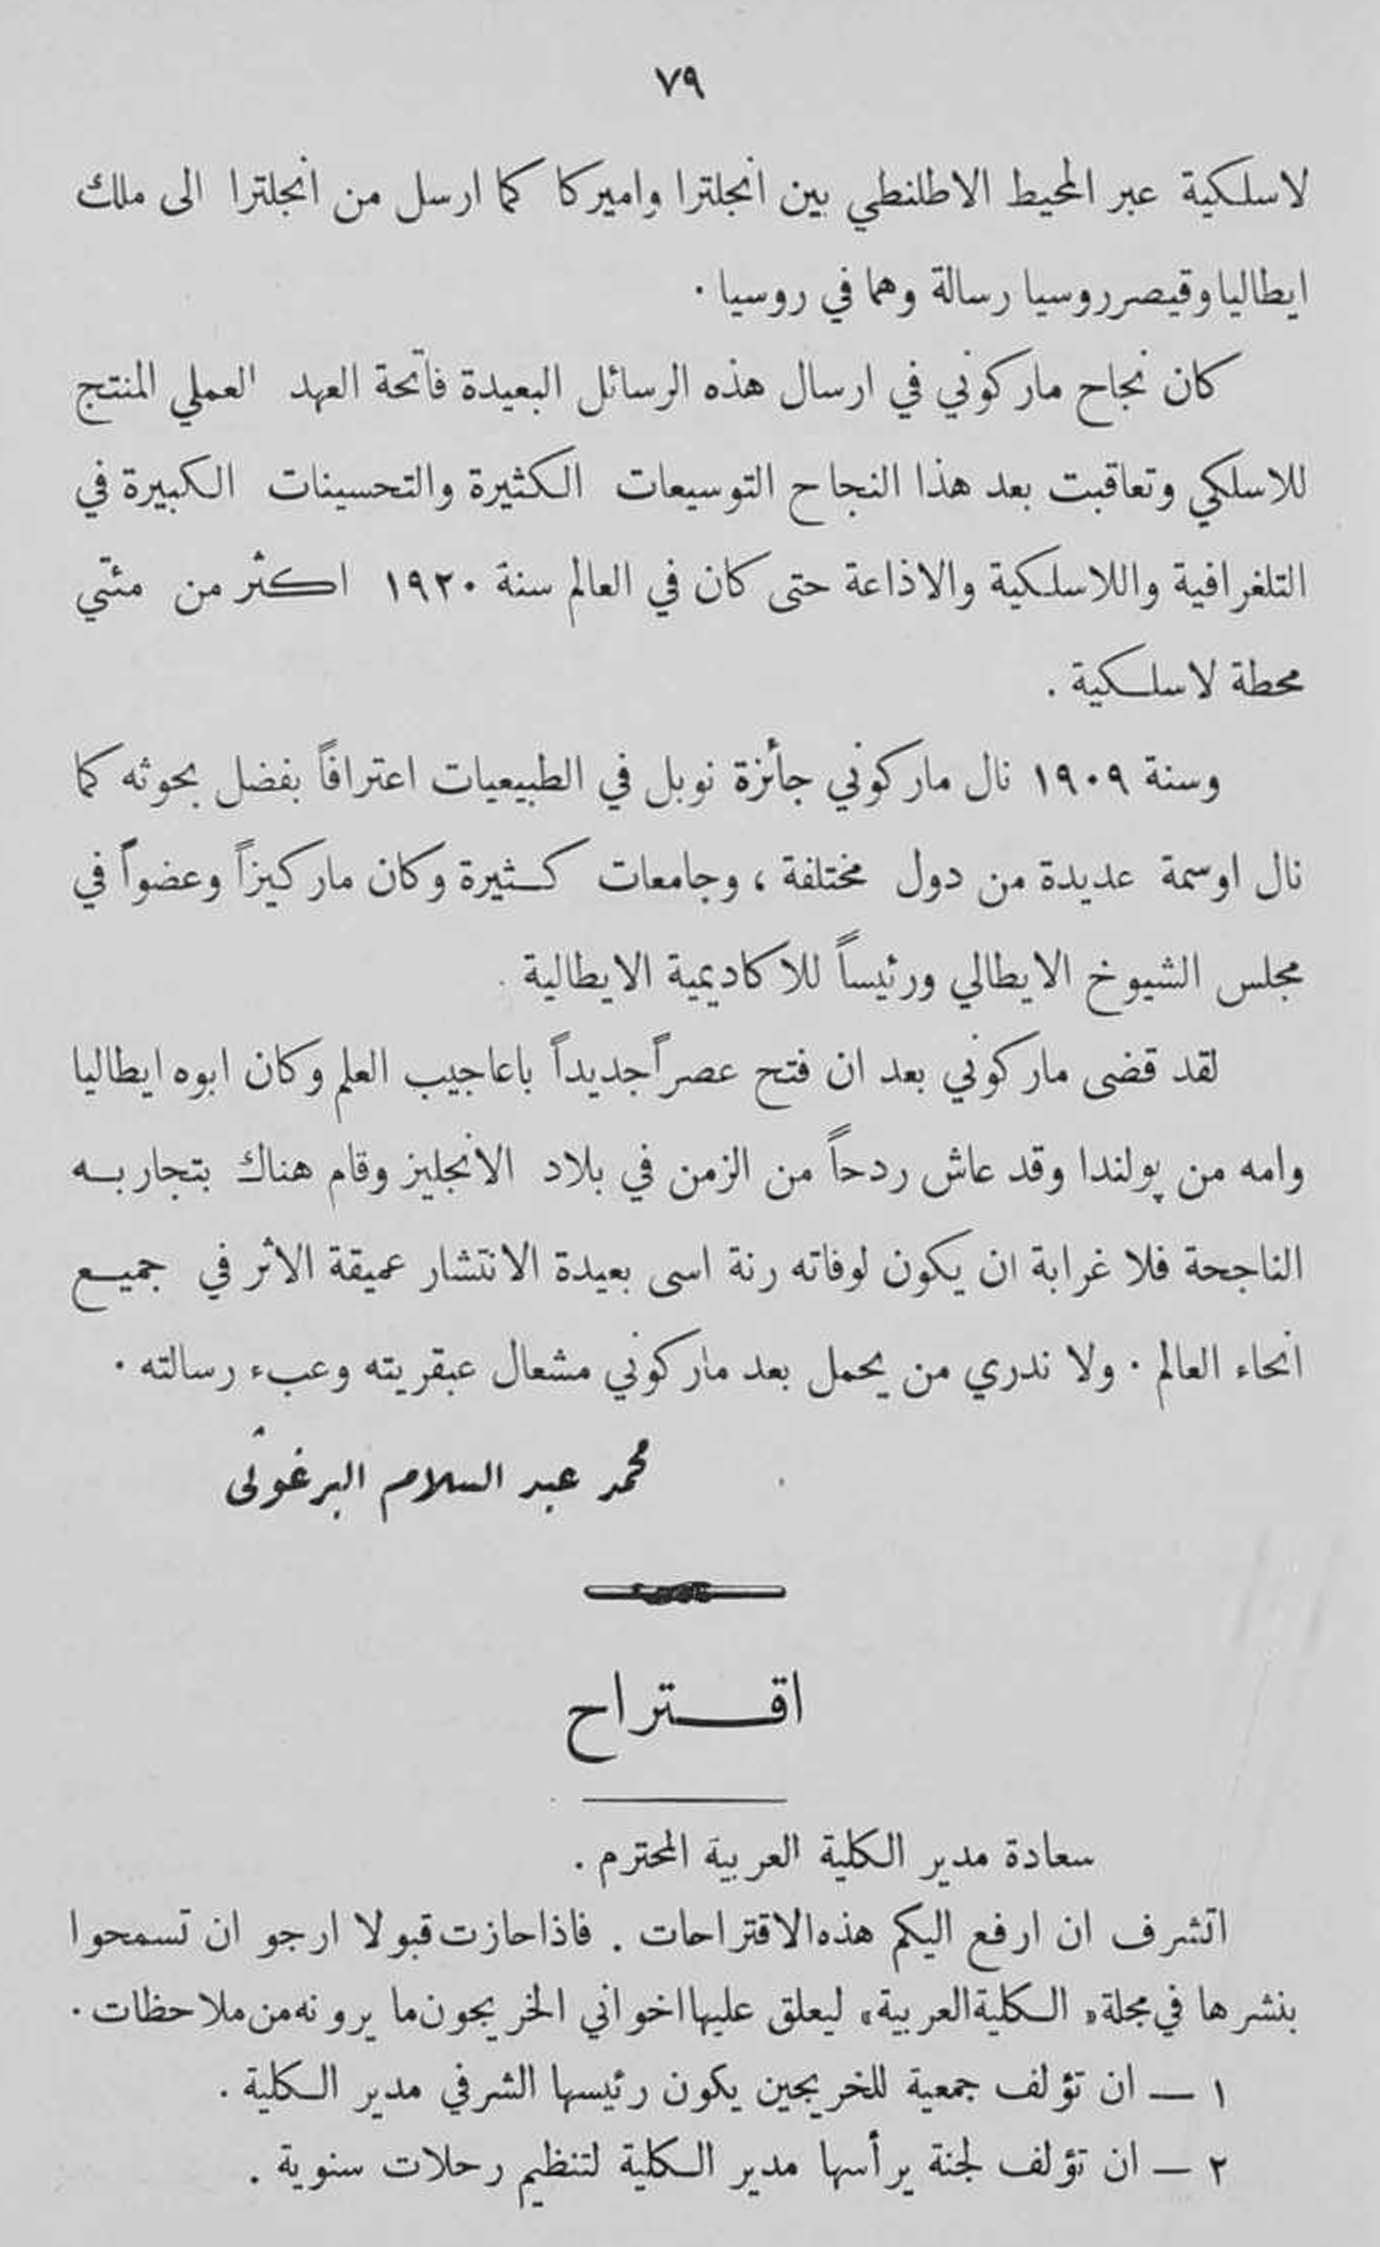 ٧٩
لاسلكية عبر المحيط الاطلنطي بين انجلترا واميركا كما ارسل من انجلترا الى ملك
ايطاليا وقيصر روسيا رسالة وهما في روسيا ٠
كان نجاح ماركوني في ارسال هذه الرسائل البعيدة فاتحة العهد العملي المنتج
للاسلكي وتعاقبت بعد هذا النجاح التوسيعات الكثيرة والتحسينات الكبيرة في
التلغرافية واللاسلكية والاذاعة حتى كان في العالم سنة ١٩٢٠ اكثر من مئتي
محطة لاسلكية .
وسنة ١٩٠٩ نال ماركوني جائزة نوبل في الطبيعيات اعترافاً بفضل بحوثه كما
نال اوسمة عديدة من دول مختلفة ، وجامعات كثيرة وكان ماركيزاً وعضواً في
مجلس الشيوخ الايطالي ورئيساً للاكاديمية الايطالية .
لقد قضى ماركوني بعد ان فتح عصراً جديداً باعاجيب العلم وكان ابوه ايطاليا
وامه من پولندا وقد عاش ردحاً من الزمن في بلاد الانجليز وقام هناك بتجاربه
الناجحة فلا غرابة ان يكون لوفاته رنة اسى بعيدة الانتشار عميقة الاثر في جميع
انحاء العالم ٠ ولا ندري من يحمل بعد ماركوني مشعال عبقريته وعبء رسالته ٠
محمد عبد السلام البرغوثى
اقتراح
سعادة مدير الكلية العربية المحترم .
اتشرف ان ارفع اليكم هذه الاقتراحات . فاذا حازت قبولا ارجو ان تسمحوا
بنشرها في مجلة « الكلية العربية » ليعلق عليها اخواني الخريجون ما يرونه من ملاحظات ٠
١ — ان تؤلف جمعية للخريجين يكون رئيسها الشرفي مدير الكلية .
٢ — ان تؤلف لجنة يرأسها مدير الكلية لتنظيم رحلات سنوية .